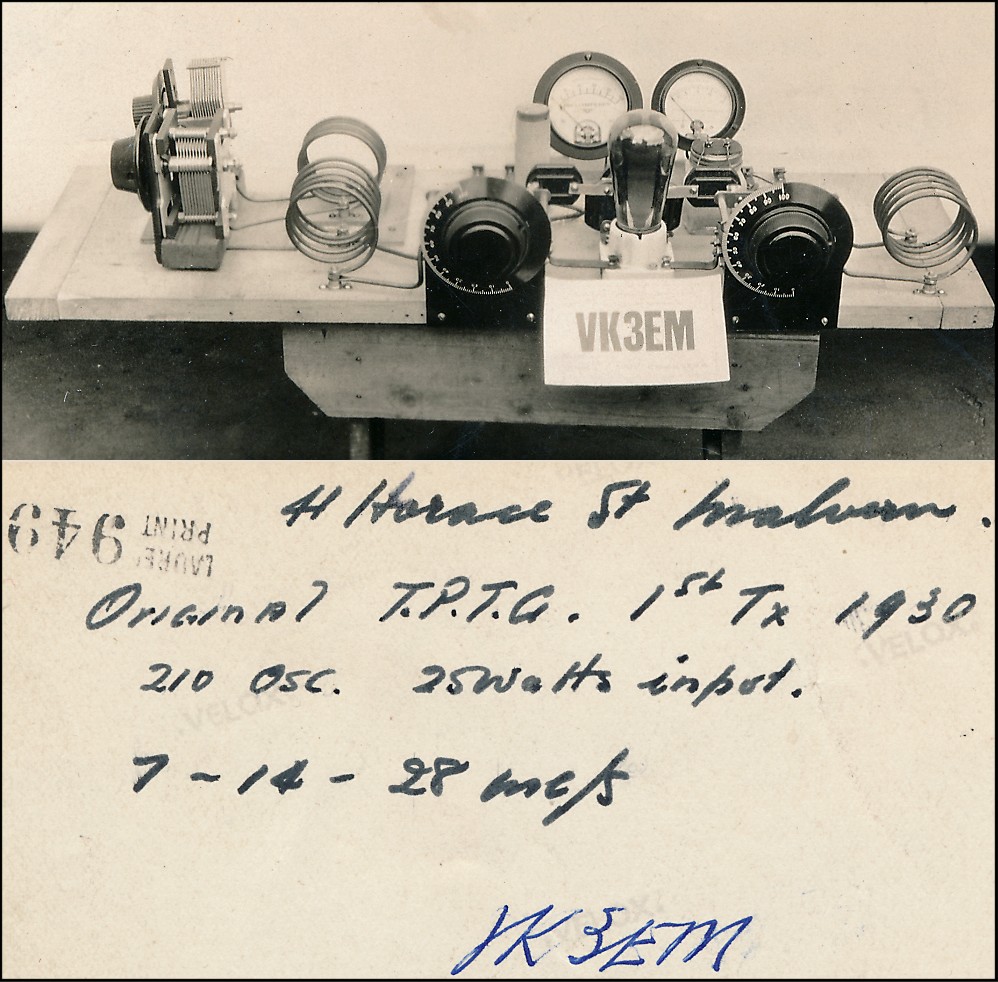 VK3EM
41 Horace St Malvern.
949 LAUREL PRINT
Original T.P.T.G. 1st Tx 1930
VELOX
210 Osc. 25Watts input.
VELOX
7 - 14 - 28 mc/s
VK3EM